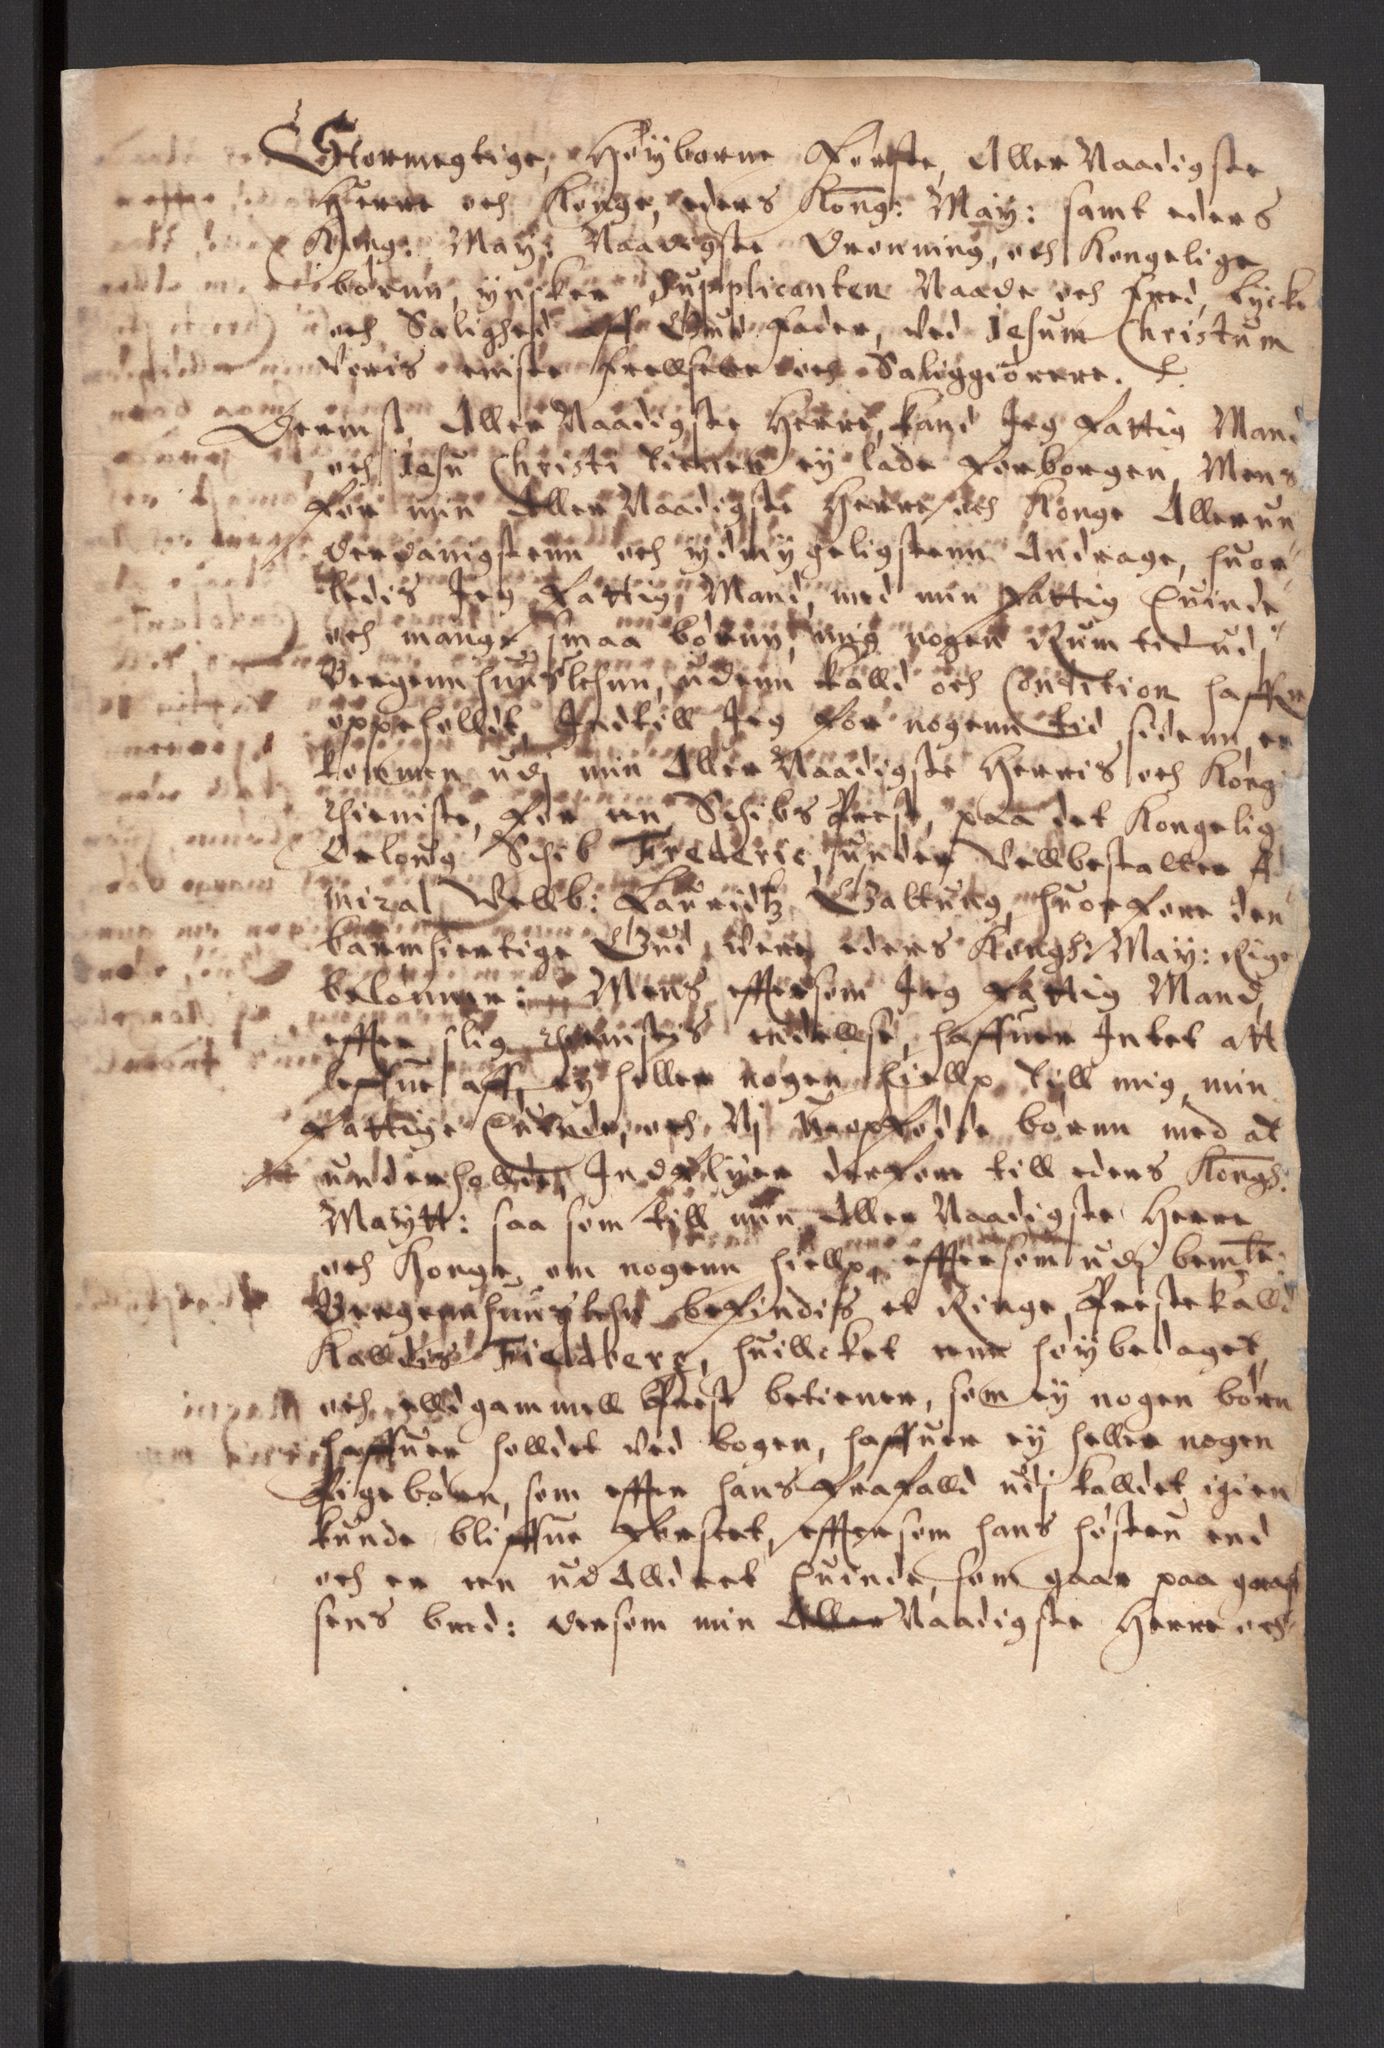 Stormegtige, Høÿborne Første, Aller Naadigste
Herre och Konge, eders Kong: Maÿ: samt eders
Kong: Maÿ: Naadigste Dronning, och Kongelige
børnn, ÿnsker Supplicanten Naade och Fred, lycke
och Salighed aff Gud Fader, ved Jesum Christum
Voris eniste Frelsere och Saliggiørere.
Dernest Aller Naadigste Herre, kand Jeg Fattig Mand
och Jesu Christi tiener eÿ lade Forborgen, Mens
For min Aller Naadigste Herre och Konge Allerun
derdanigstenn och ÿdmÿgeligstenn Andrage, huor-
ledis Jeg Fattig Mand, med min Fattig Quinde
och mange smaa børnn, mig nogen Rum tid udj
Bergennhuuslehnn, udenn kalld och Condition haffuer
oppeholldt, Indtill Jeg for nogenn tid sidenn, er
kommen udj min Aller Naadigste Herris och Kong:
thieniste, For een Schibs Prest, paa det Kongelig
Orlong Schib Frederic, under Vellbestalter Ad
miral Vellb: Lauridtz Galtung, huorfore den
barmhiertige Gud vere eders Kongh: Maÿ: Rige
belønner: Mens effter som Jeg Fattig Mand,
effter slig thienistis endelse, haffuer Intet att
leffue aff, eÿ heller nogen hielp till mig, min
Fattige Quinde, och Vj Uopfødde børnn med at
underholde, Indflÿer derfore till eders Kongh:
Maÿtt: saa som till min Aller Naadigste Herre
och Konge, om nogenn hielp, efftersom udj bemte:
Bergennhuuslehn befindis et Ringe Prestekalld
Kalldis Fieldberg, huillcket een høÿbedaget
och elldgammell Prest betiener, som eÿ nogen børn
haffuer holldet ved bogen, haffuer eÿ heller nogen
Pigebørn, som effter hans Frafalld udj kalldet igien
kunde bliffue Forseet, efftersom hans høstru end
och er een udAlldret Quinde, som gaar paa graff
sens bred: Dersom min Aller Naadigste Herre och